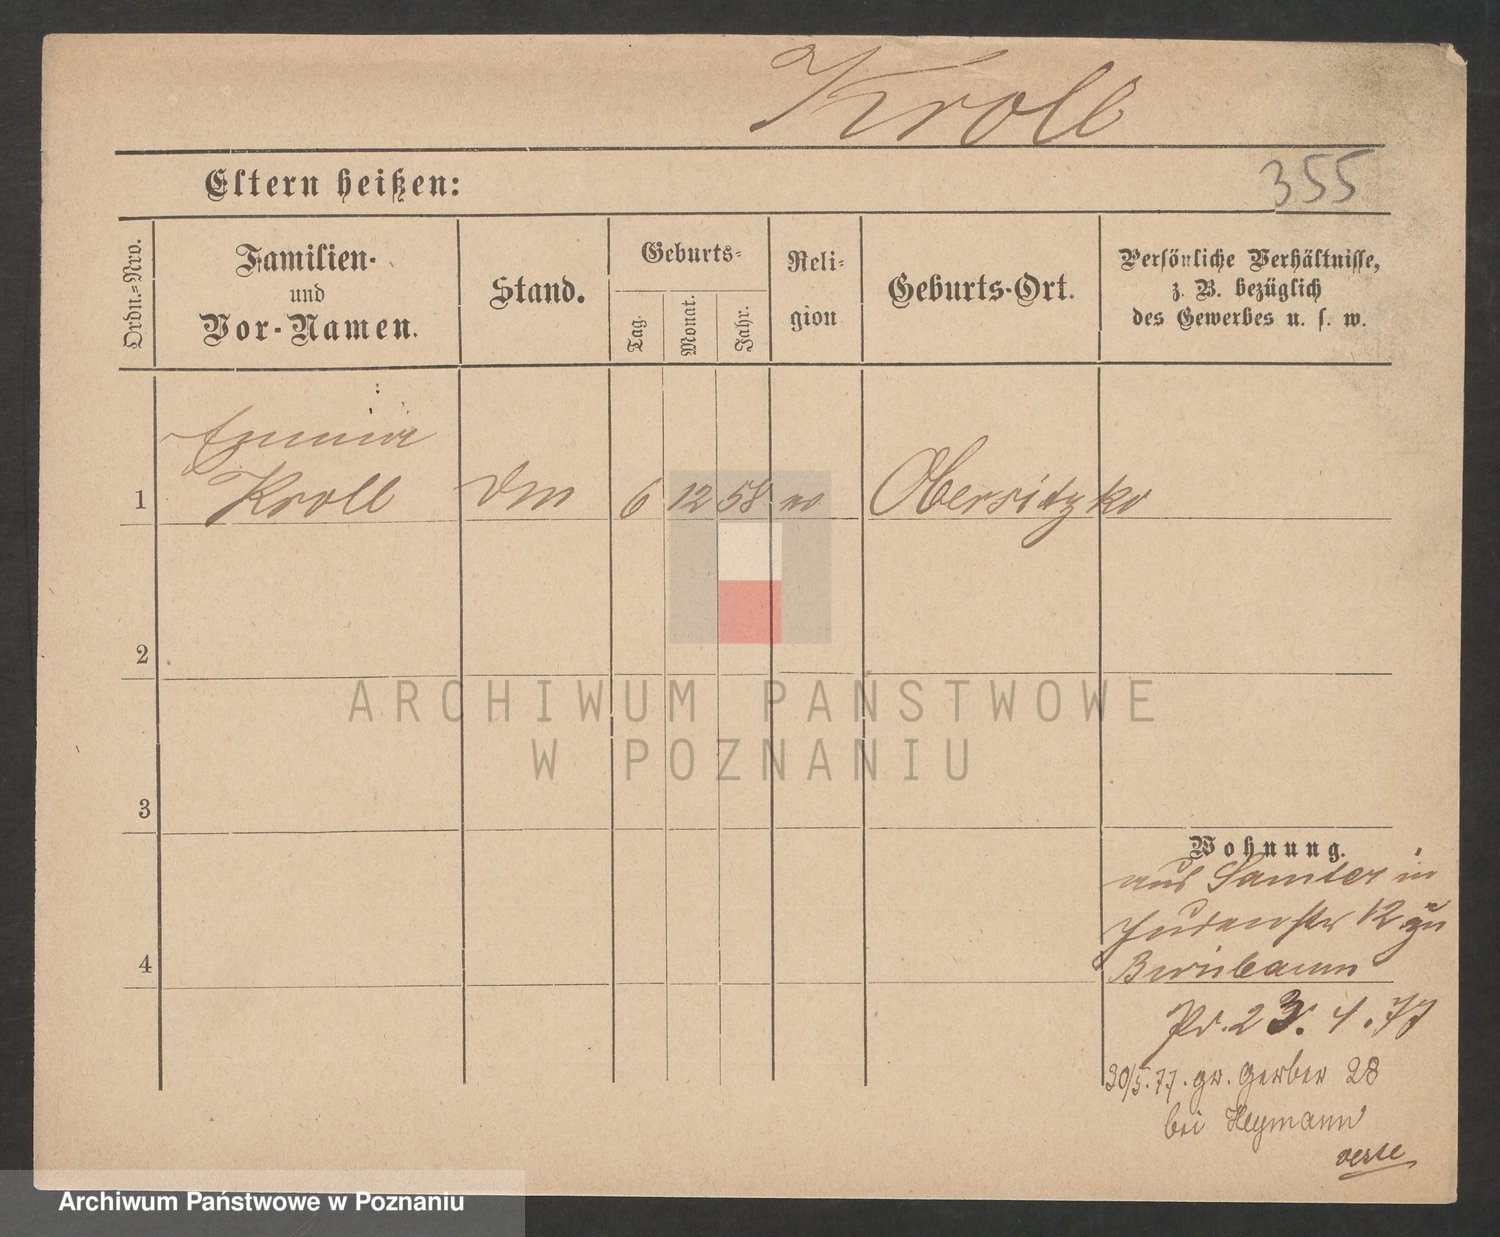 Kroll
355
Eltern heißen:
Ordn.-Nro.
Familien-
und
Vor-Namen.
Stand.
Geburts-
Tag.
Monat.
Jahr.
Reli-
gion
Geburts-Ort.
Persönliche Verhältnisse,
z. B. bezüglich
des Gewerbes u. s. w.
Kroll
1
6 12 58
Obersitzko
2
ARCHIWUM PAŃSTWOWE
W POZNANIU
3
Wohnung.
aus Samter in
Judenstr 12 zu
Birnbaum
4
23. 4. 77
30/5. 77. gr. Gerber 28
bei Heymann
Archiwum Państwowe w Poznaniu